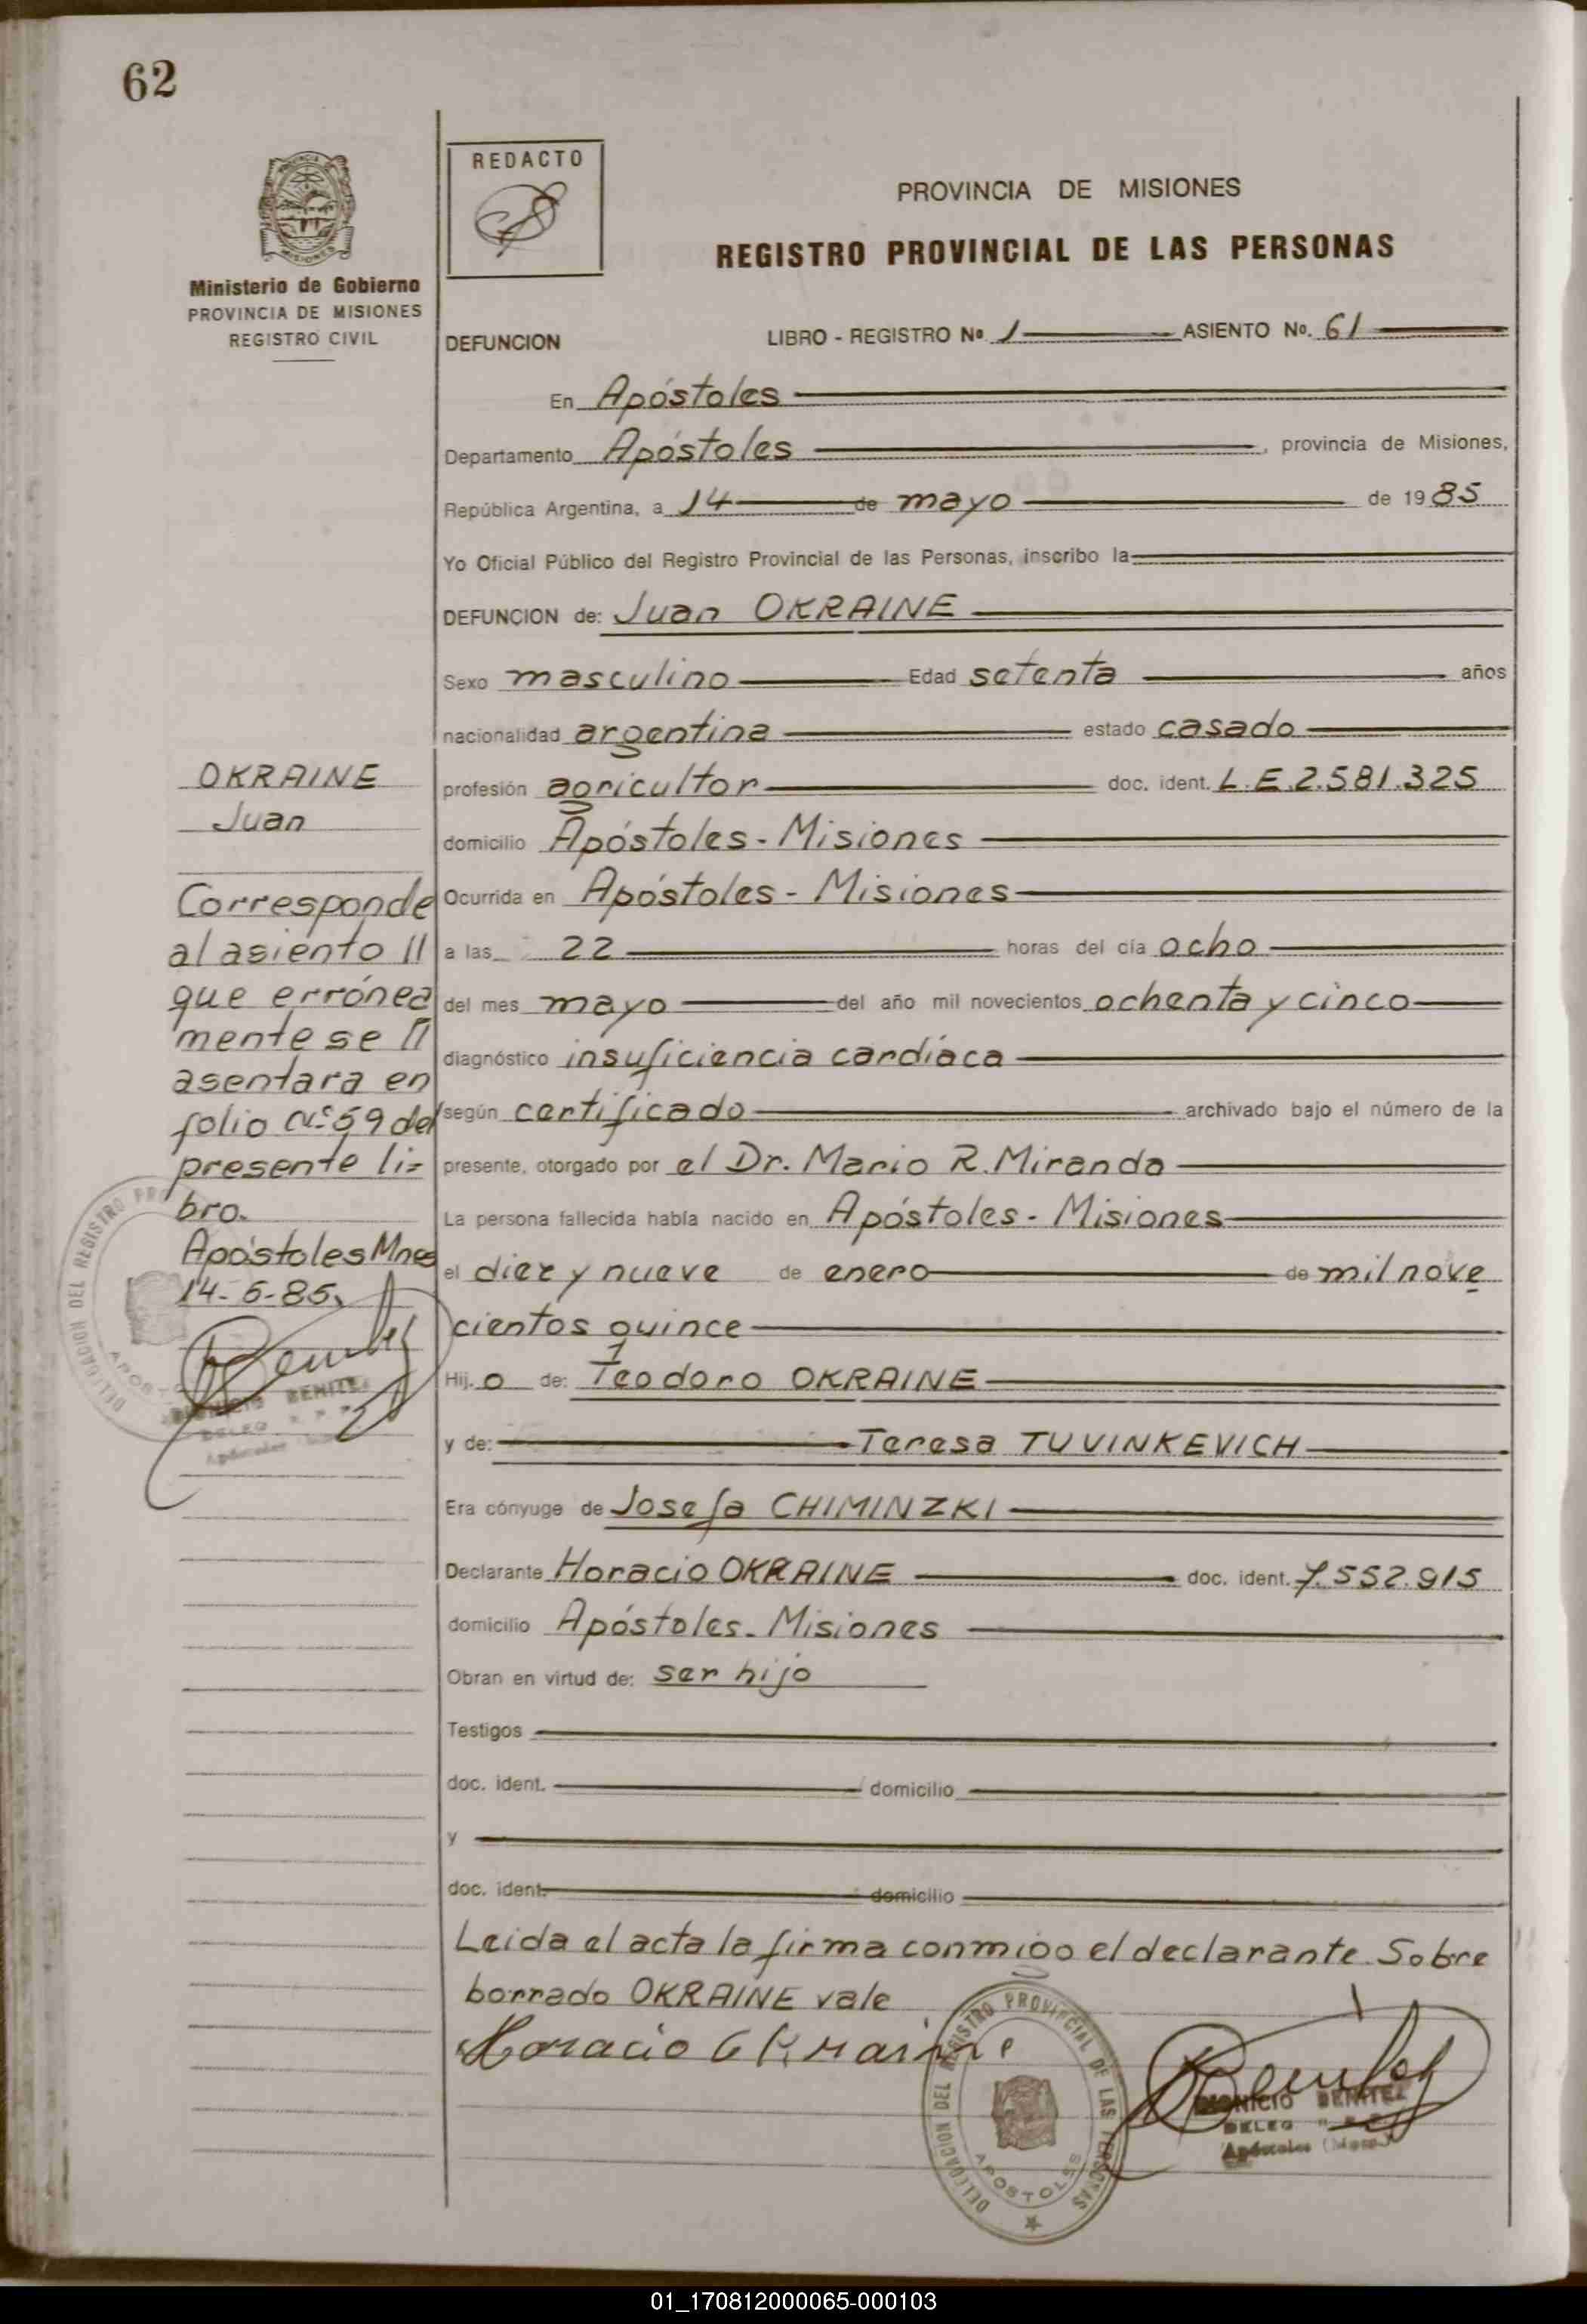 62
REDACTO
Ministerio de Gobierno
PROVINCIA DE MISIONES
REGISTRO CIVIL
PROVINCIA DE MISIONES
REGISTRO PROVINCIAL DE LAS PERSONAS
DEFUNCION LIBRO - REGISTRO Nº 1 ASIENTO Nº. 61
En Apóstoles
Departamento Apóstoles, provincia de Misiones,
República Argentina, a 14 de mayo de 1985
Yo Oficial Público del Registro Provincial de las Personas, inscribo la
DEFUNCION de: Juan OKRAINE
Sexo masculino Edad setenta años
nacionalidad argentina estado casado
profesión agricultor doc. ident. L.E.2.581.325
domicilio Apóstoles - Misiones
Ocurrida en Apóstoles - Misiones
a las 22 horas del día ocho
del mes mayo del año mil novecientos ochenta y cinco
diagnóstico insuficiencia cardíaca
según certificado archivado bajo el número de la
presente, otorgado por el Dr. Mario R. Miranda
La persona fallecida había nacido en Apóstoles - Misiones
el diez y nueve de enero de mil nove
cientos quince
Hij.o de: Teodoro OKRAINE
y de: Teresa TUVINKEVICH
Era cónyuge de Josefa CHIMINZKI
Declarante Horacio OKRAINE doc. ident. 7.552.915
domicilio Apóstoles - Misiones
Obran en virtud de: ser hijo
Testigos
doc. ident. domicilio
y
doc. ident. domicilio
Leida el acta la firma conmigo el declarante. Sobre
borrado OKRAINE vale
Horacio Okraine
DELEGACION DEL REGISTRO PROVINCIAL DE LAS PERSONAS
APOSTOLES
DIONICIO BENITEZ
DELEG
Apóstoles
OKRAINE
Juan
Corresponde
al asiento //
que errónea
mente se //
asentara en
folio nº 59 del
presente li=
bro.
Apóstoles Mnes
14-5-85.
DELEGACION DEL REGISTRO PRO
APOST
BENITEZ
DELEG
Apóstoles
01_170812000065-000103